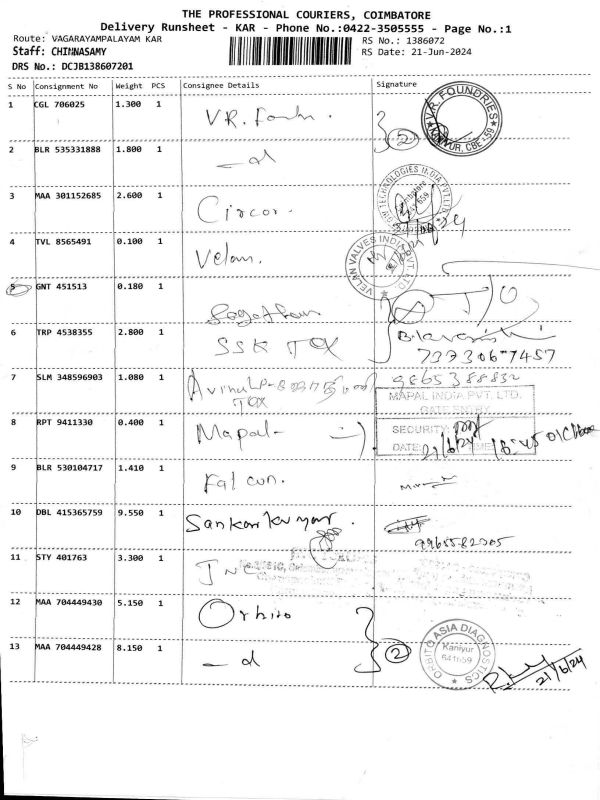 THE PROFESSIONAL COURIERS, COIMBATORE
Delivery Runsheet - KAR - Phone No.:0422-3505555 - Page No.:1
Route: VAGARAYAMPALAYAM KAR
RS No.: 1386072
Staff: CHINNASAMY
RS Date: 21-Jun-2024
DRS No.: DCJB138607201
S No Consignment No Weight PCS Consignee Details Signature
1 CGL 706025 1.300 1 V.R. V.R. FOUNDRIES KANIYUR, CBE-59
2 BLR 535331888 1.800 1 2
3 MAA 301152685 2.600 1 Circor. TECHNOLOGIES INDIA PVT LTD
4 TVL 8565491 0.100 1 Velan. VELAN VALVES INDIA PVT. LTD.
5 GNT 451513 0.180 1
6 TRP 4538355 2.800 1 SSK
7373067457
7 SLM 348596903 1.080 1 9865388832
8 RPT 9411330 0.400 1 Mapal MAPAL INDIA PVT. LTD.
GATE ENTRY
SECURITY
DATE: 21/6/24 TIME:
9 BLR 530104717 1.410 1 Falcon.
10 DBL 415365759 9.550 1 Sankarkumar.
11 STY 401763 3.300 1
12 MAA 704449430 5.150 1 Orbito
13 MAA 704449428 8.150 1 2 ORBITO ASIA DIAGNOSTICS Kaniyur 641659
21/6/24